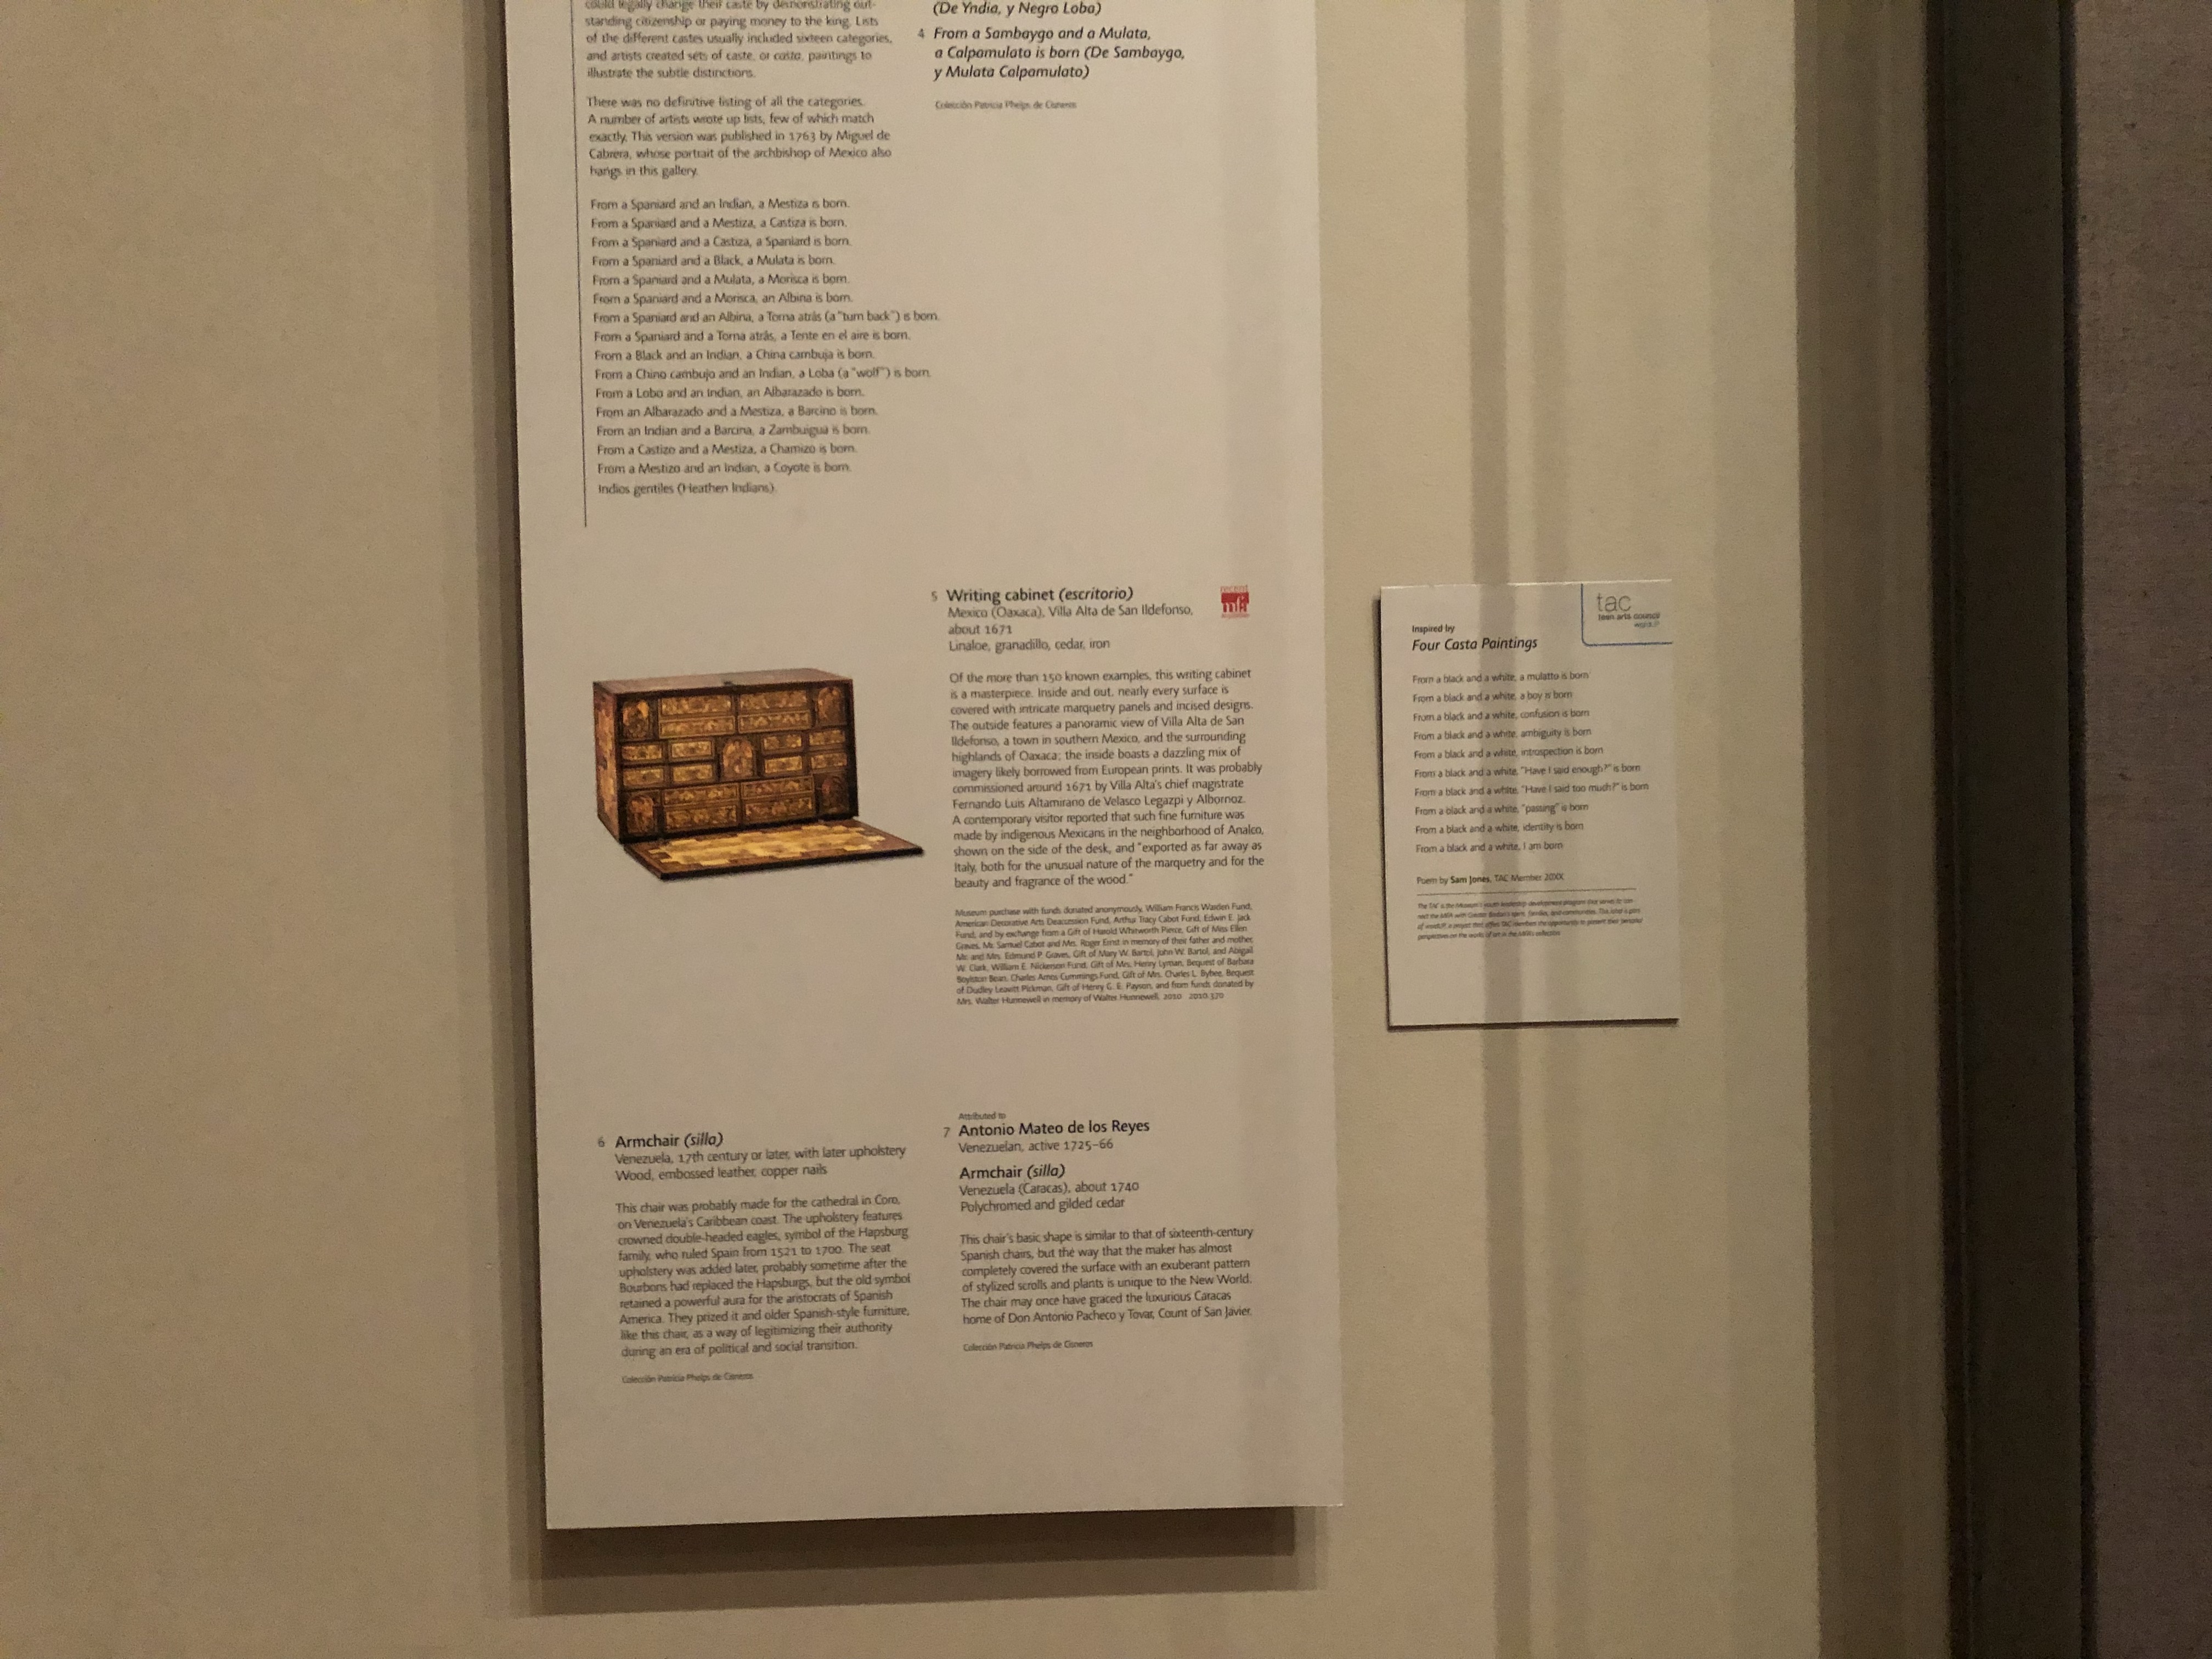 could legally change their caste by demonstrating out-
standing citizenship or paying money to the king. Lists
of the different castes usually included sixteen categories,
and artists created sets of caste, or casta, paintings to
illustrate the subtle distinctions.
There was no definitive listing of all the categories.
A number of artists wrote up lists, few of which match
exactly. This version was published in 1763 by Miguel de
Cabrera, whose portrait of the archbishop of Mexico also
hangs in this gallery.
From a Spaniard and an Indian, a Mestiza is born.
From a Spaniard and a Mestiza, a Castiza is born.
From a Spaniard and a Castiza, a Spaniard is born.
From a Spaniard and a Black, a Mulata is born.
From a Spaniard and a Mulata, a Morisca is born.
From a Spaniard and a Morisca, an Albina is born.
From a Spaniard and an Albina, a Torna atrás (a "turn back") is born.
From a Spaniard and a Torna atrás, a Tente en el aire is born.
From a Black and an Indian, a China cambuja is born.
From a Chino cambujo and an Indian, a Loba (a "wolf") is born.
From a Lobo and an Indian, an Albarazado is born.
From an Albarazado and a Mestiza, a Barcino is born.
From an Indian and a Barcina, a Zambuigua is born.
From a Castizo and a Mestiza, a Chamizo is born.
From a Mestizo and an Indian, a Coyote is born.
Indios gentiles (Heathen Indians).
(De Yndia, y Negro Loba)
4 From a Sambaygo and a Mulata,
a Calpamulato is born (De Sambaygo,
y Mulata Calpamulato)
Colección Patricia Phelps de Cisneros
5 Writing cabinet (escritorio)
Mexico (Oaxaca), Villa Alta de San Ildefonso,
about 1671
Linaloe, granadillo, cedar, iron
mfa
Of the more than 150 known examples, this writing cabinet
is a masterpiece. Inside and out, nearly every surface is
covered with intricate marquetry panels and incised designs.
The outside features a panoramic view of Villa Alta de San
Ildefonso, a town in southern Mexico, and the surrounding
highlands of Oaxaca; the inside boasts a dazzling mix of
imagery likely borrowed from European prints. It was probably
commissioned around 1671 by Villa Alta's chief magistrate
Fernando Luis Altamirano de Velasco Legazpi y Albornoz.
A contemporary visitor reported that such fine furniture was
made by indigenous Mexicans in the neighborhood of Analco,
shown on the side of the desk, and "exported as far away as
Italy, both for the unusual nature of the marquetry and for the
beauty and fragrance of the wood."
Museum purchase with funds donated anonymously, William Francis Warden Fund,
American Decorative Arts Deaccession Fund, Arthur Tracy Cabot Fund, Edwin E. Jack
Fund, and by exchange from a Gift of Harold Whitworth Pierce, Gift of Miss Ellen
Graves, Mr. Samuel Cabot and Mrs. Roger Ernst in memory of their father and mother,
Mr. and Mrs. Edmund P. Graves, Gift of Mary W. Bartol, John W. Bartol, and Abigail
W. Clark, William E. Nickerson Fund, Gift of Mrs. Henry Lyman, Bequest of Barbara
Boylston Bean, Charles Amos Cummings Fund, Gift of Mrs. Charles L. Bybee, Bequest
of Dudley Leavitt Pickman, Gift of Henry G. E. Payson, and from funds donated by
Mrs. Walter Hunnewell in memory of Walter Hunnewell, 2010 2010.370
6 Armchair (silla)
Venezuela, 17th century or later, with later upholstery
Wood, embossed leather, copper nails
This chair was probably made for the cathedral in Coro,
on Venezuela's Caribbean coast. The upholstery features
crowned double-headed eagles, symbol of the Hapsburg
family, who ruled Spain from 1521 to 1700. The seat
upholstery was added later, probably sometime after the
Bourbons had replaced the Hapsburgs, but the old symbol
retained a powerful aura for the aristocrats of Spanish
America. They prized it and older Spanish-style furniture,
like this chair, as a way of legitimizing their authority
during an era of political and social transition.
Colección Patricia Phelps de Cisneros
Attributed to
7 Antonio Mateo de los Reyes
Venezuelan, active 1725–66
Armchair (silla)
Venezuela (Caracas), about 1740
Polychromed and gilded cedar
This chair's basic shape is similar to that of sixteenth-century
Spanish chairs, but the way that the maker has almost
completely covered the surface with an exuberant pattern
of stylized scrolls and plants is unique to the New World.
The chair may once have graced the luxurious Caracas
home of Don Antonio Pacheco y Tovar, Count of San Javier.
Colección Patricia Phelps de Cisneros
tac
teen arts council
Inspired by
Four Casta Paintings
From a black and a white, a mulatto is born
From a black and a white, a boy is born
From a black and a white, confusion is born
From a black and a white, ambiguity is born
From a black and a white, introspection is born
From a black and a white, "Have I said enough?" is born
From a black and a white, "Have I said too much?" is born
From a black and a white, "passing" is born
From a black and a white, identity is born
From a black and a white, I am born
Poem by Sam Jones, TAC Member 20XX
The TAC is the Museum's youth leadership development program that serves to con-
nect the MFA with Greater Boston's teens, families, and communities. This label is part
of a project that offers TAC members the opportunity to present their personal
perspectives on the works of art in the MFA's collection.